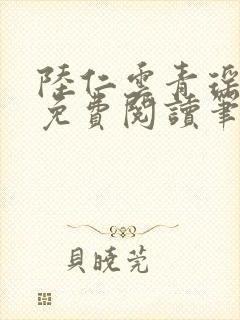 陸仁雲青瑤
免費閱讀筆
貝曉莞